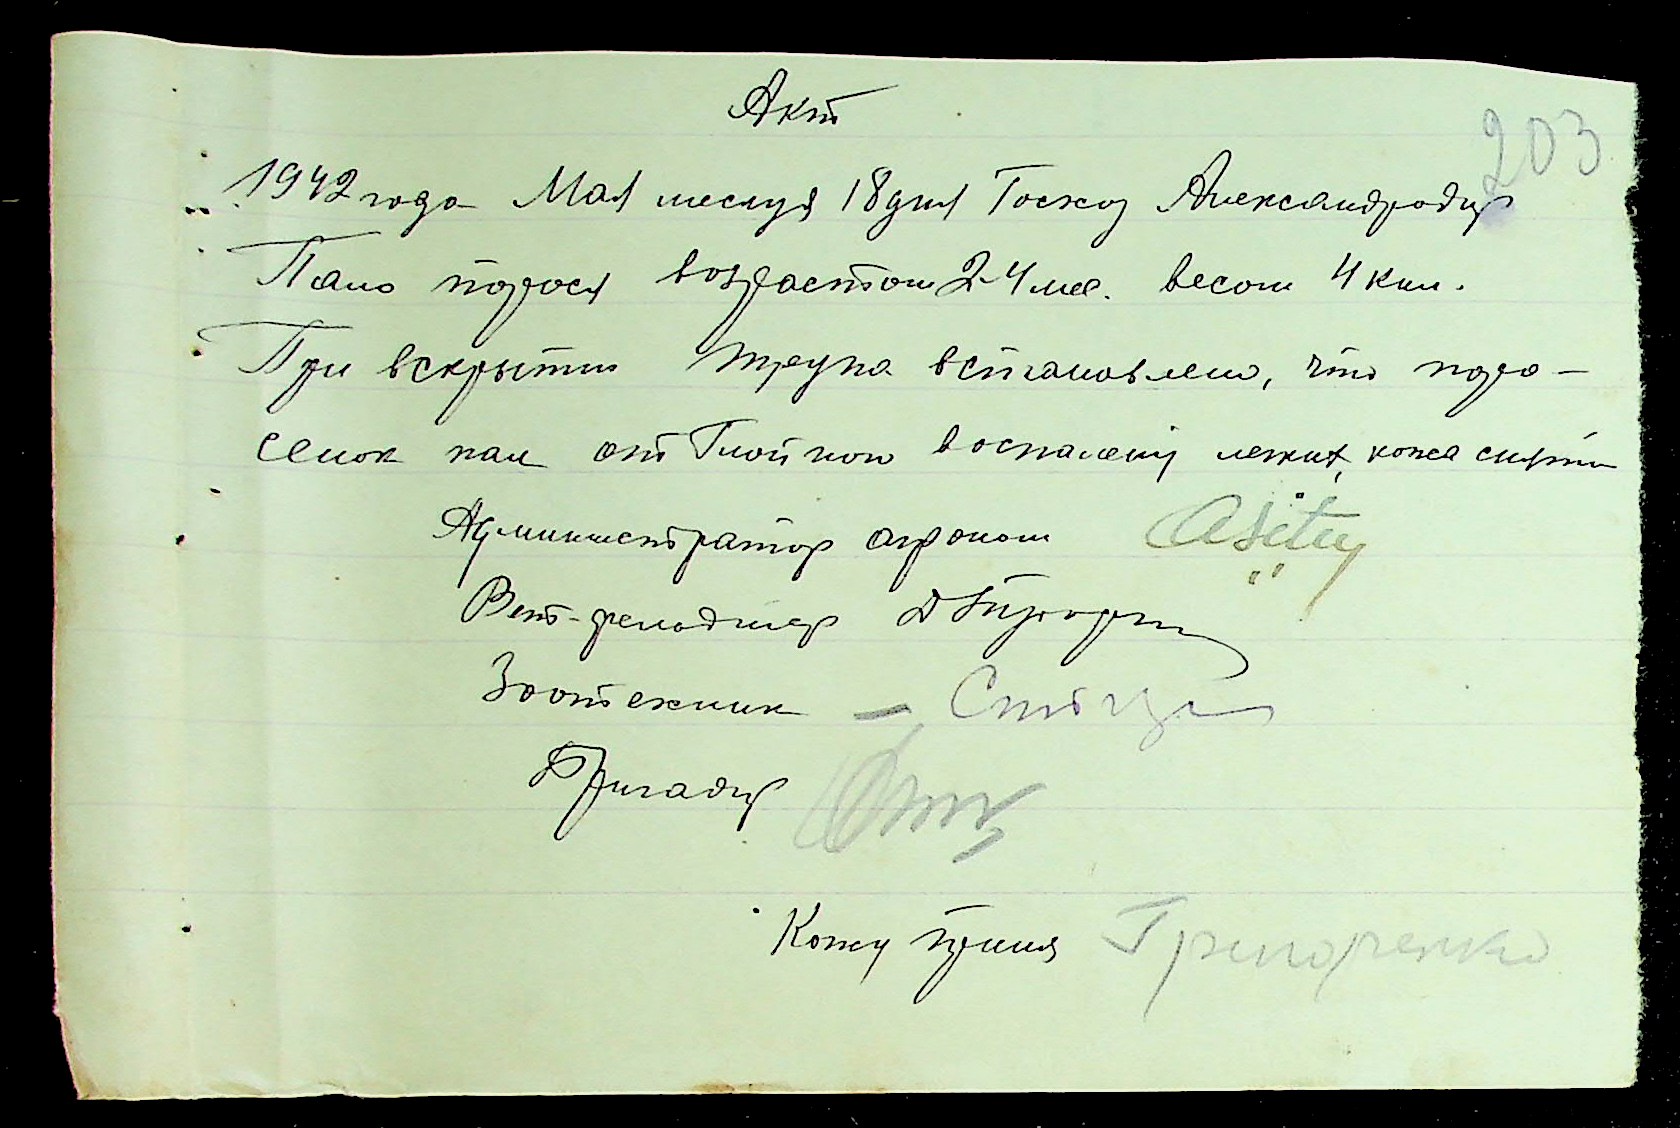 Акт
203
1942 года Мая месяця 18 дня Госхоз Александродар
Пало порося возрастом 2-4 мес. весом 4 кил.
При вскрытии трупа встановлено, что поро-
сенок пал от Гнойного воспалению легких, кожа снята
Администратор агроном
Вет-фельдшер
Зоотехник —
Бригадир
Кожу принял Григоренко